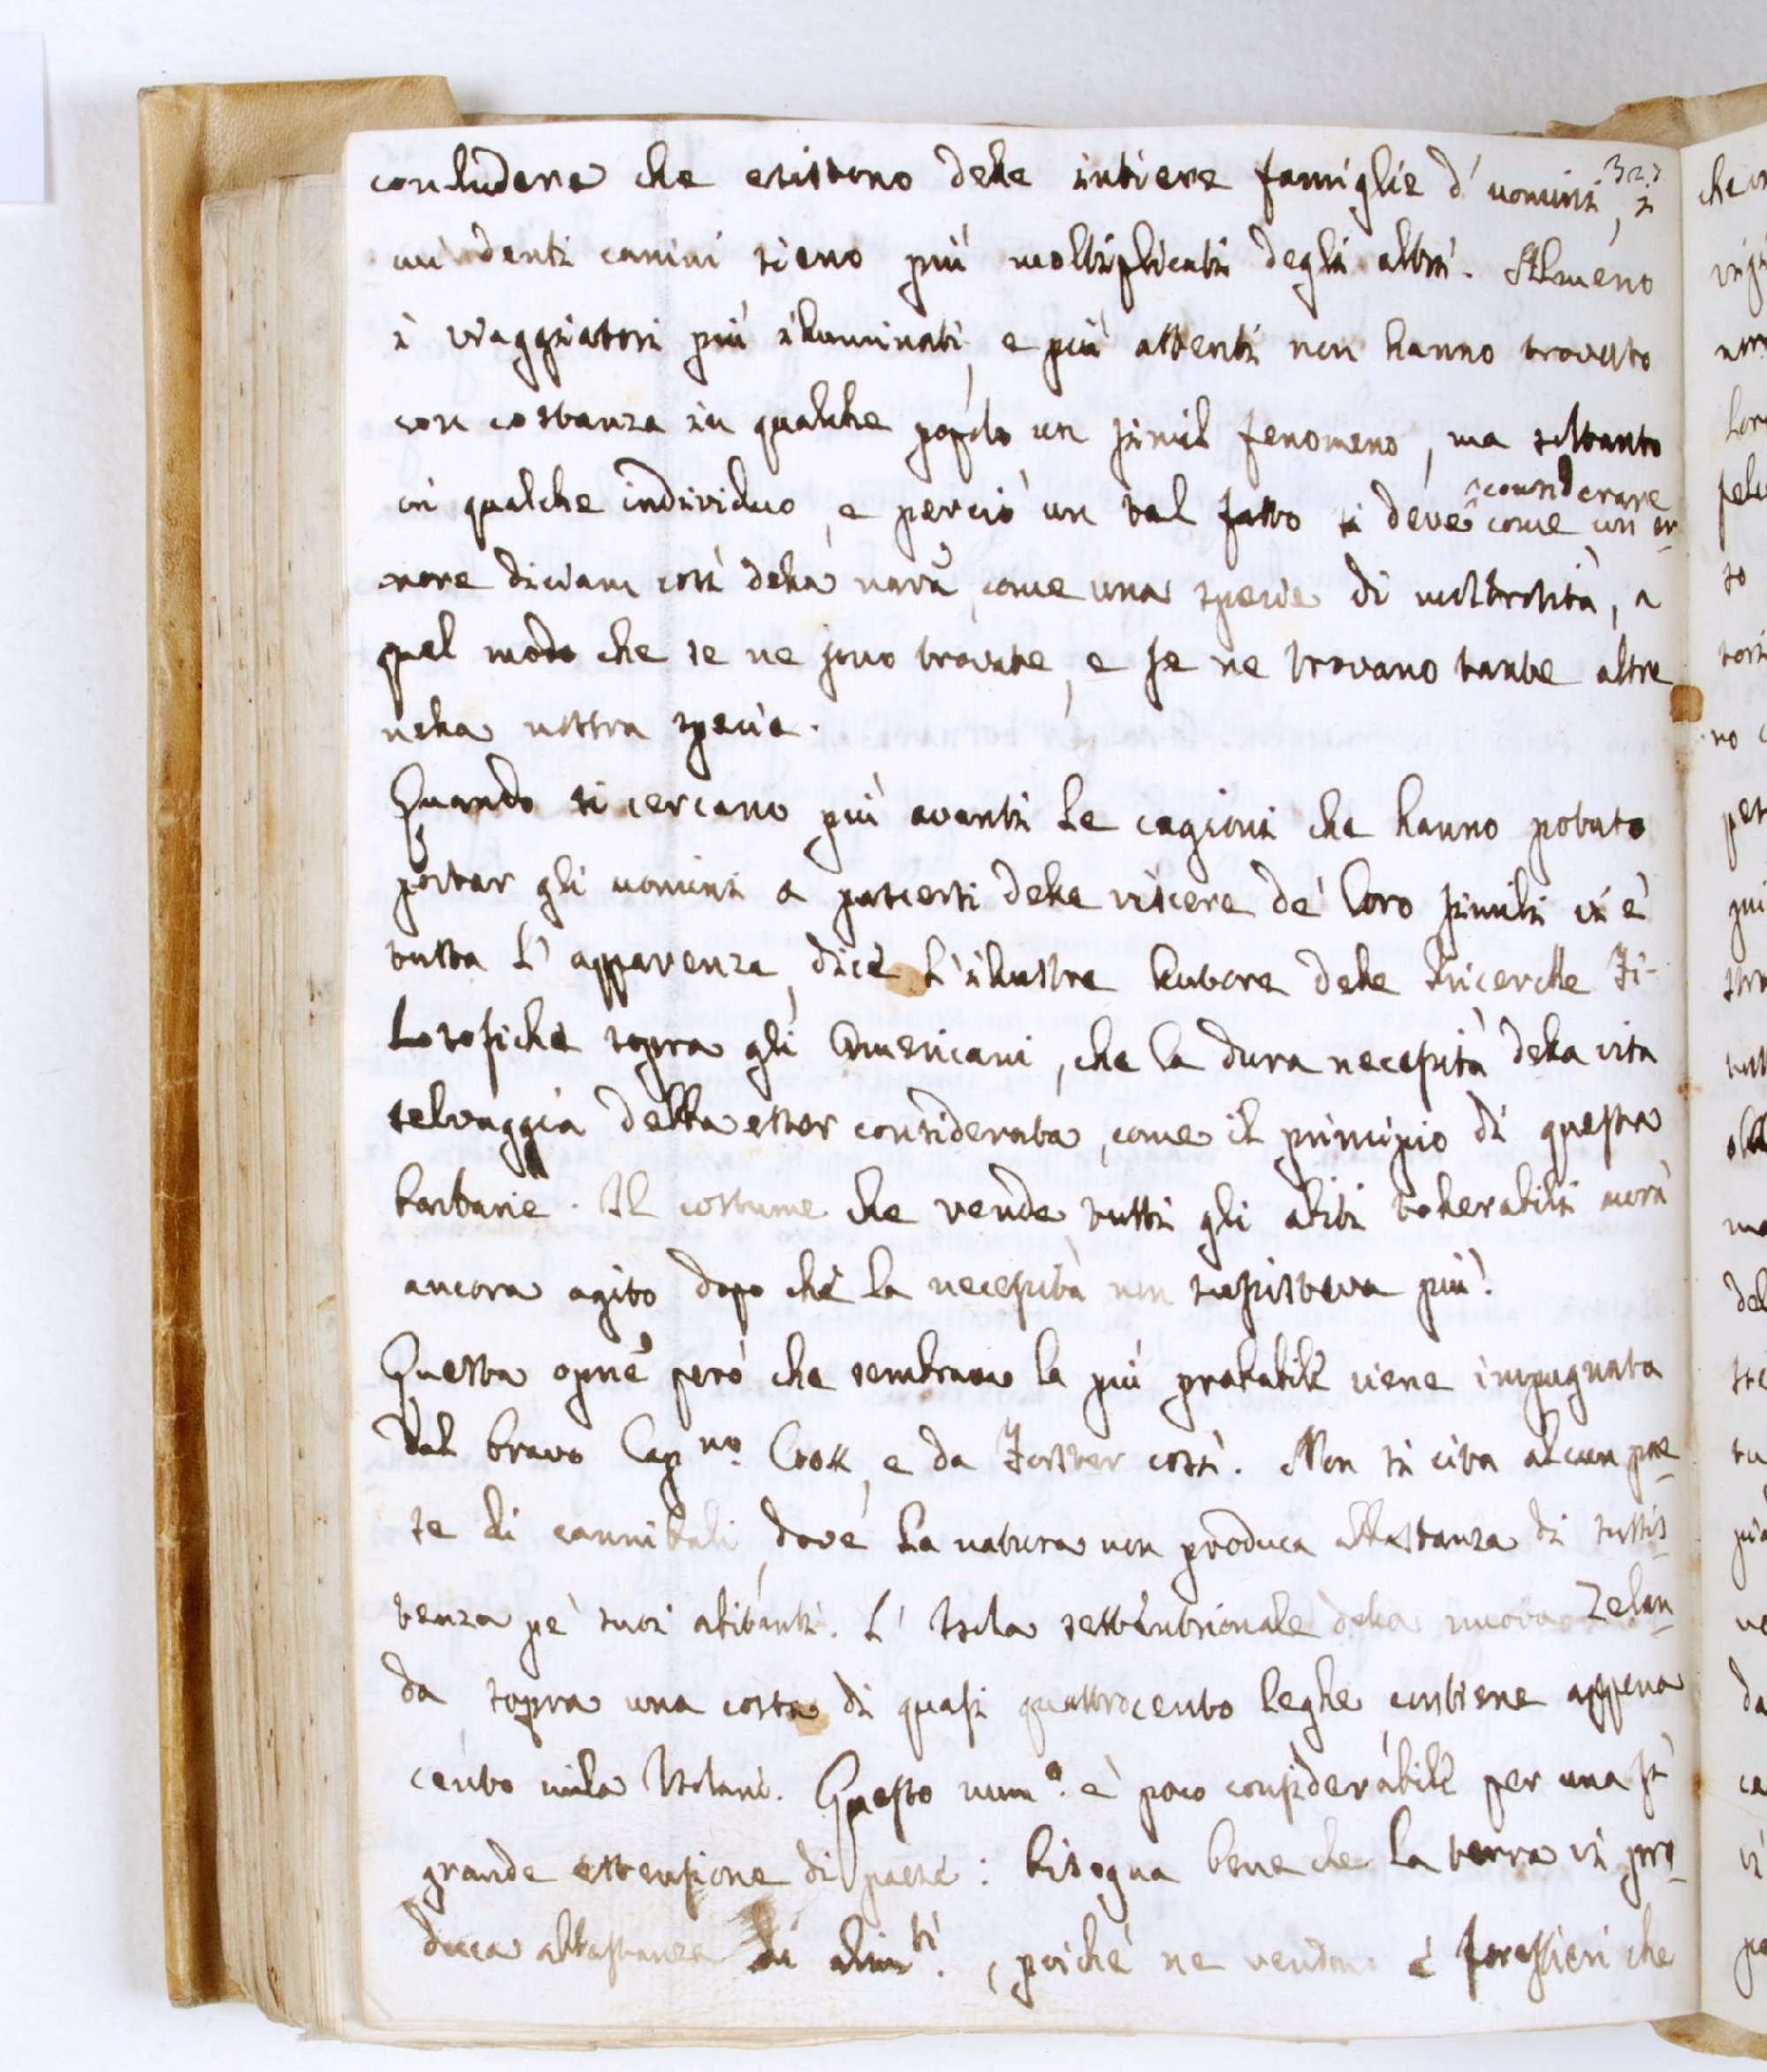 327
concludere che esistono delle intiere famiglie d' uomini, i
cui denti canini sieno più moltiplicati degli altri. Almeno
i viaggiatori più illuminati, e più attenti non hanno trovato
con costanza in qualche popolo un simil fenomeno, ma soltanto
in qualche individuo, e perciò un tal fatto si deve considerare come un er-
rore diciam così della natũ, come una specie di mostrosità, a
quel modo che se ne sono trovate, e se ne trovano tante altre
nella nostra specie.
Quando si cercano più avanti le cagioni che hanno potuto
portar gli uomini a pascersi delle viscere de' loro simili vi è
tutta l' apparenza, dice l' illustre Autore delle Ricerche Fi-
losofiche sopra gli Americani, che la dura necessità della vita
selvaggia debba esser considerata, come il principio di questa
barbarie. Il costume che rende tutti gli abiti tollerabili avrà
ancora agito dopo che la necessità non sussisteva più.
Questa opnẽ però che sembrava la più probabile viene impugnata
dal bravo Cap.no Cook, e da Forster così. Non si cita alcun pae-
se di cannibali, dove la natura non produca abbastanza di sussis-
tenza pe' suoi abitanti. L' Isola settentrionale della nuova Zelan-
da sopra una costa di quasi quattrocento leghe contiene appena
cento mila Isolani. Questo num.o è poco considerabile per una sì
grande estensione di paese: bisogna bene che la terra vi pro-
duca abbastanza di alim.ti, poiché ne vendono a' forestieri che